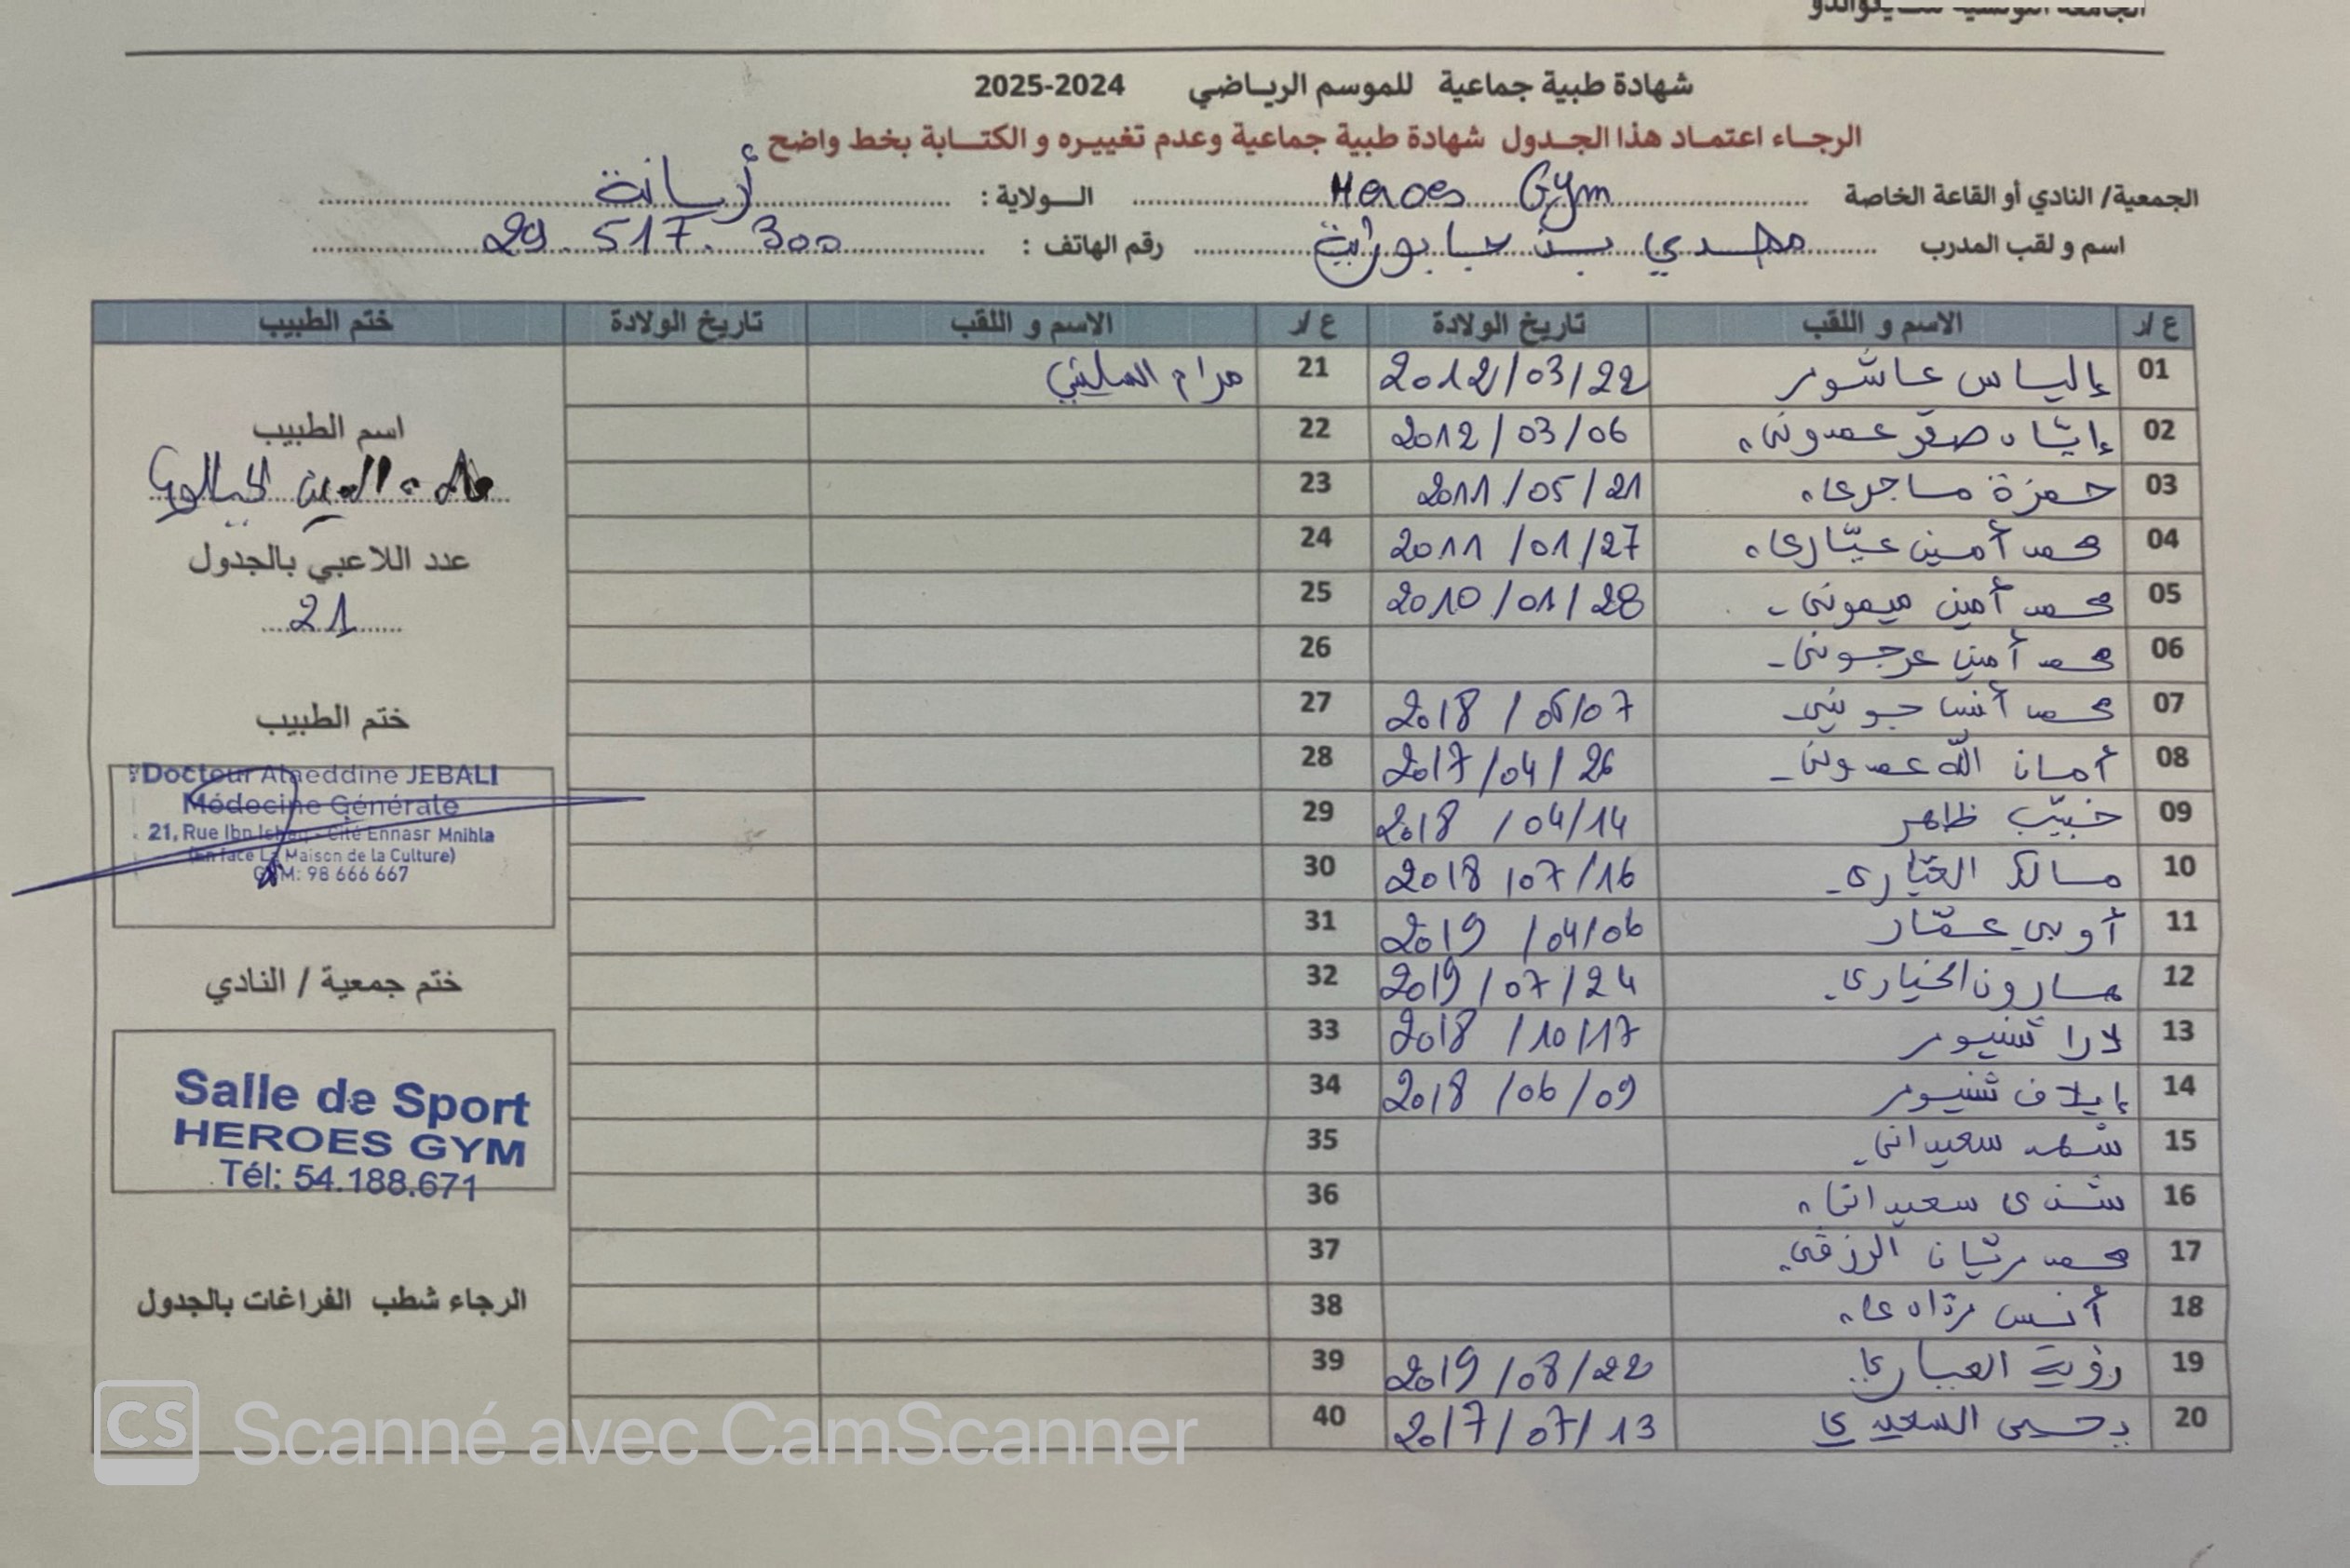 شهادة طبية جماعية للموسم الرياضي 2024-2025
الرجاء اعتماد هذا الجدول شهادة طبية جماعية وعدم تغييره و الكتابة بخط واضح
الجمعية/ النادي أو القاعة الخاصة Heroes Gym الولاية : أريانة
اسم و لقب المدرب مهدي بن رقم الهاتف : 29.517.300
ع/ر الاسم و اللقب تاريخ الولادة ع/ر الاسم و اللقب تاريخ الولادة ختم الطبيب
01 إلياس عاشور 2012/03/22 21 مرام السليتي
02 إياد صقر عمدوني 2012/03/06 22
03 حمزة ماجري 2011/05/21 23
04 محمد أمين عياري 2011/01/27 24
05 محمد أمين ميموني 2010/01/28 25
06 محمد أمين عرجوني 26
07 محمد أنس جويني 2018/05/07 27
08 أمان الله عمدوني 2017/04/26 28
09 خبيب ظاهر 2018/04/14 29
10 مالك العياري 2018/07/16 30
11 أوبي عمار 2019/04/06 31
12 هارون الخياري 2019/07/24 32
13 لارا شنيور 2018/10/17 33
14 إيلاف شنيور 2018/06/09 34
15 شهد سعيداني 35
16 شذى سعيداني 36
17 محمد ريان الرزقي 37
18 أنس 38
19 رؤية العياري 2019/08/22 39
20 يحيى السعيدي 2017/07/13 40
اسم الطبيب
علاء الدين الجبالي
عدد اللاعبي بالجدول
21
ختم الطبيب
Docteur Alaeddine JEBALI
Médecine Générale
21, Rue Ibn Ishaq - Cité Ennasr Mnihla
(En face La Maison de la Culture)
GSM: 98 666 667
ختم جمعية / النادي
Salle de Sport
HEROES GYM
Tél: 54.188.671
الرجاء شطب الفراغات بالجدول
CS Scanné avec CamScanner